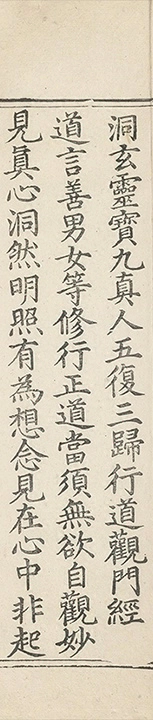 洞玄靈寶九真人五復三歸行道觀門經
道言善男女等修行正道當須無欲自觀妙
見真心洞然明照有為想念見在心中非起